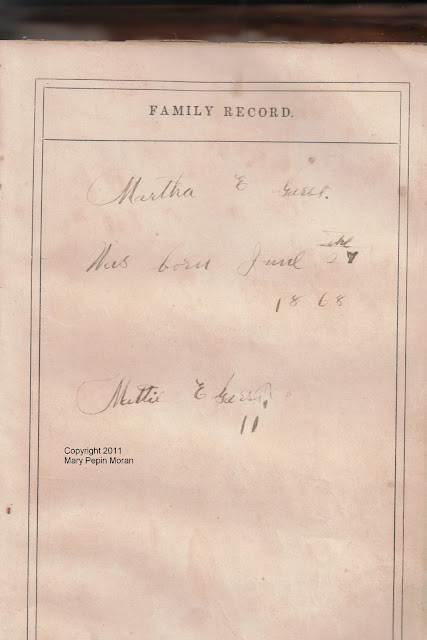 FAMILY RECORD.
Martha E
Was born June
1868
Mettie E
11
Copyright 2011
Mary Pepin Moran